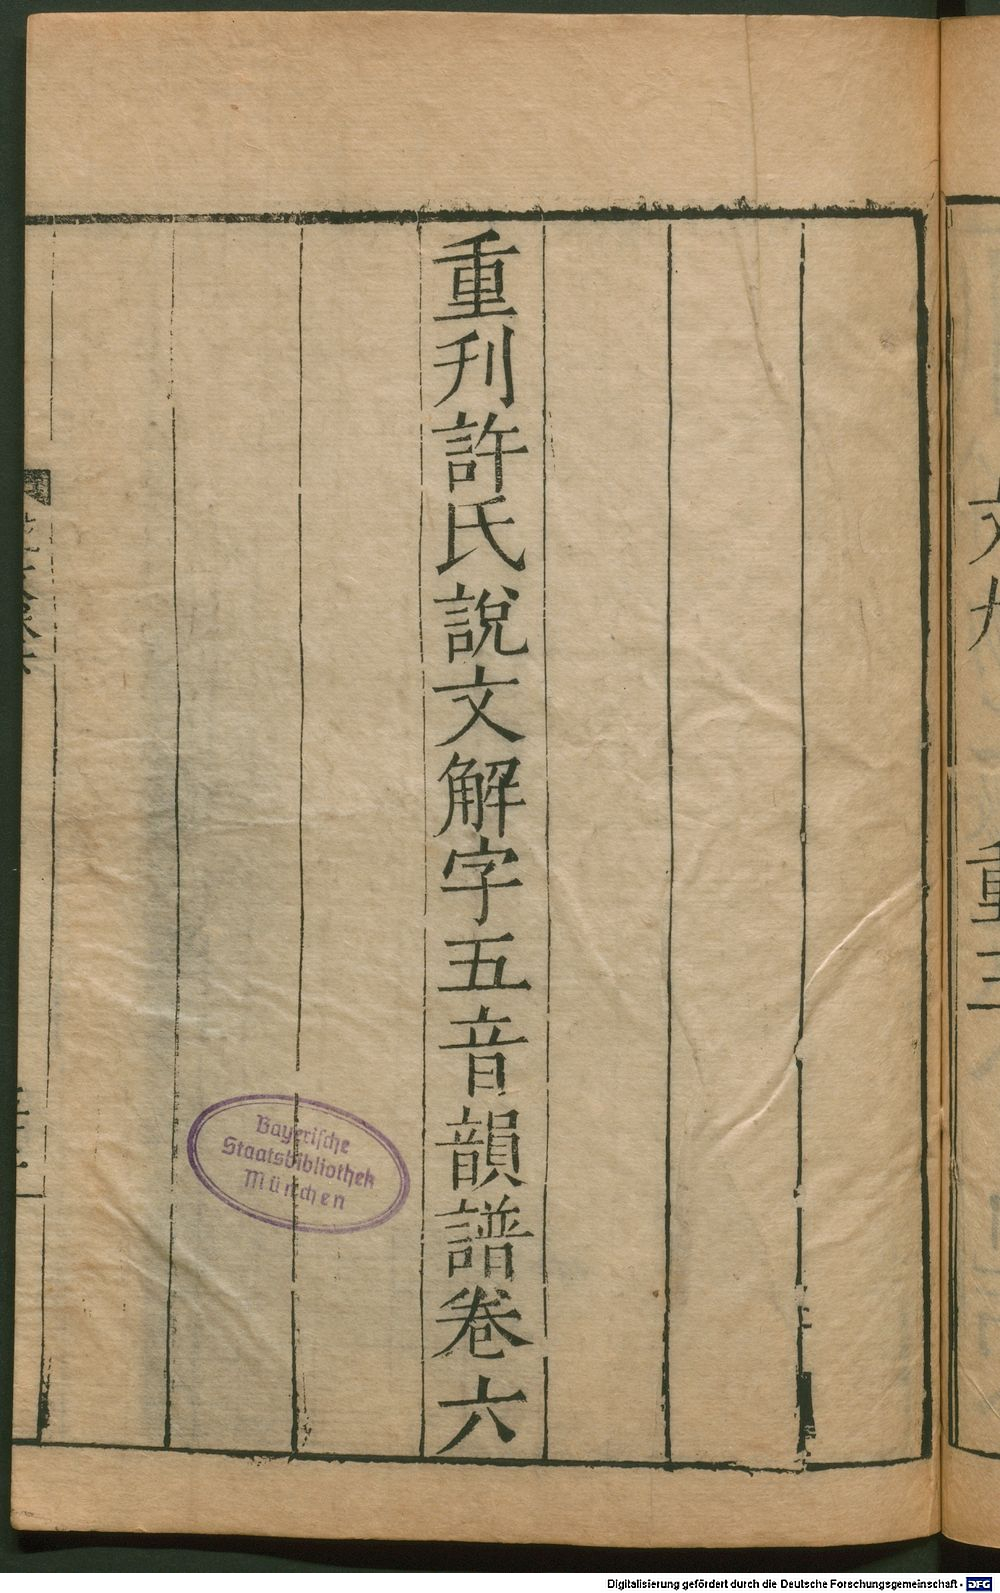 重刊許氏說文解字五音韻譜卷六
重三
Bayerische
Staatsbibliothek
München
Digitalisierung gefördert durch die Deutsche Forschungsgemeinschaft - DFG